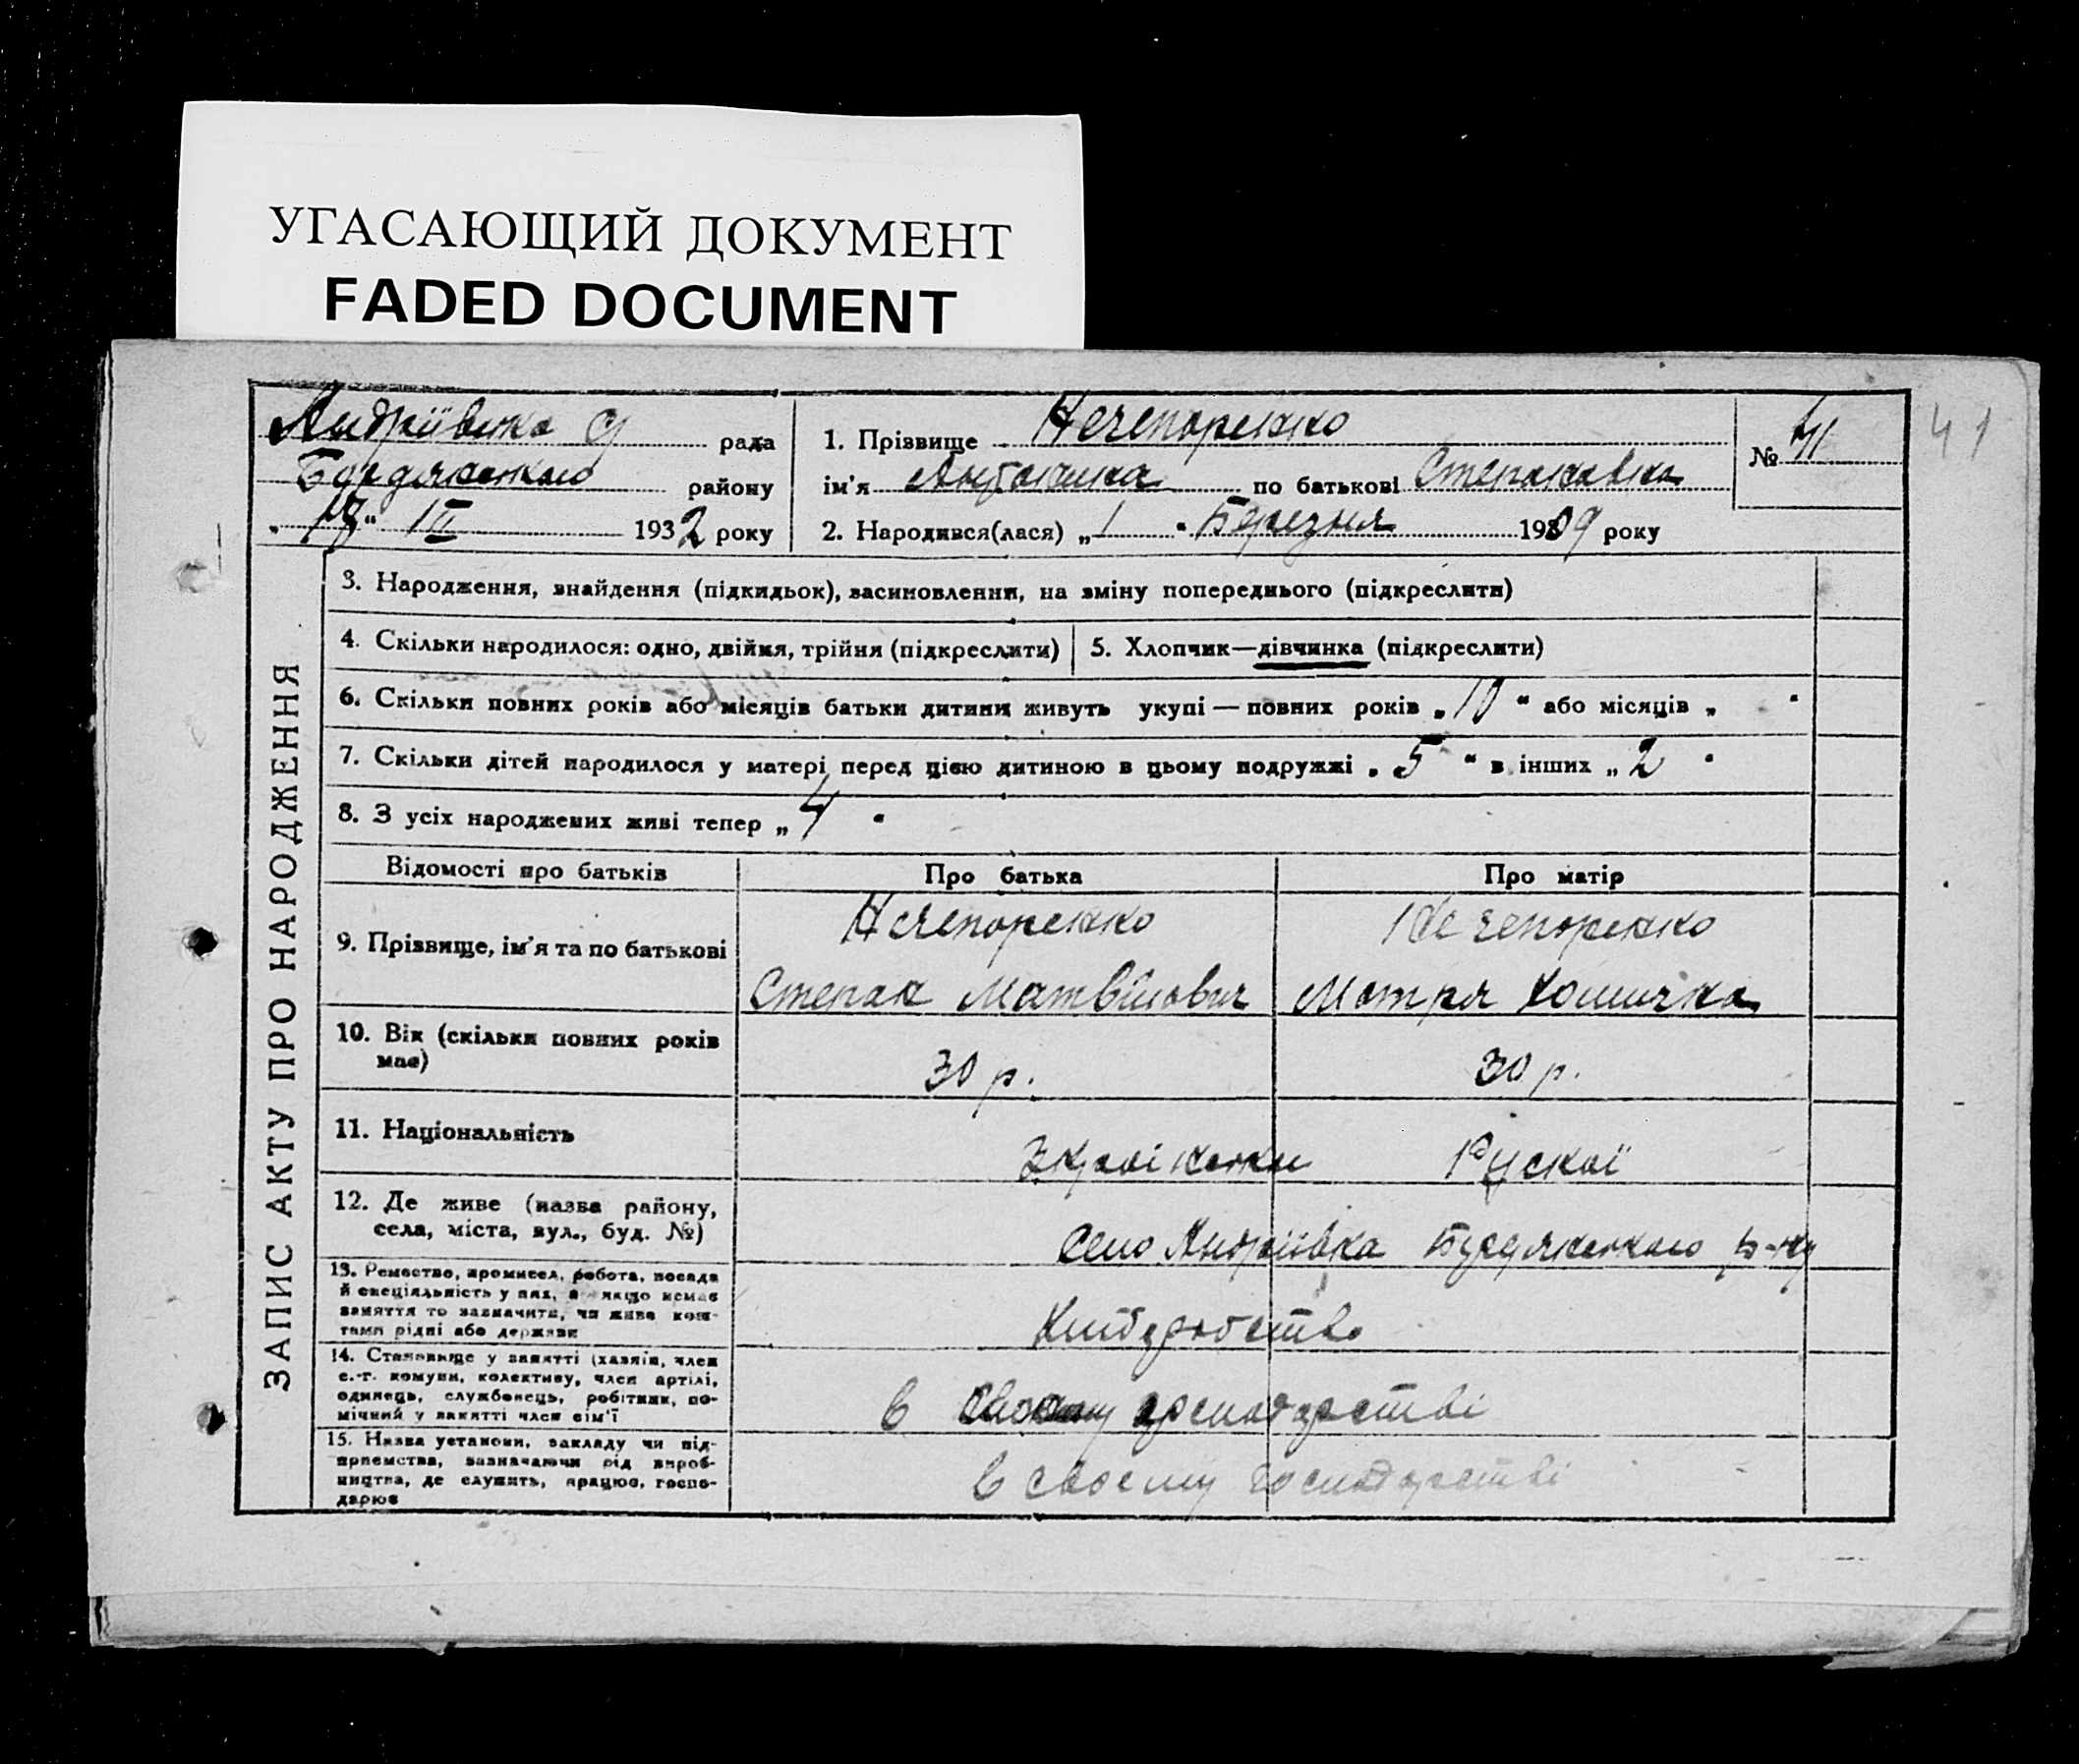 УГАСАЮЩИЙ ДОКУМЕНТ
FADED DOCUMENT
41
рада
району
1932 року
1. Прізвище Нечепоренко
ім'я по батькові
2. Народився(лася) „1" Березня року
№ 41
ЗАПИС АКТУ ПРО НАРОДЖЕННЯ
3. Народження, знайдення (підкидьок), засиновлення, на зміну попереднього (підкреслити)
4. Скільки народилося: одно, двійня, трійня (підкреслити)
5. Хлопчик—дівчинка (підкреслити)
6. Скільки повних років або місяців батьки дитини живуть укупі — повних років „10" або місяців „ "
7. Скільки дітей народилося у матері перед цією дитиною в цьому подружжі „5" в інших „2"
8. З усіх народжених живі тепер „4"
Відомості про батьків
Про батька
Про матір
9. Прізвище, ім'я та по батькові
Нечепоренко
Степан Матвійович
Нечепоренко
Мотря
10. Вік (скільки повних років
має)
30 р.
30 р.
11. Національність
Руской
12. Де живе (назва району,
села, міста, вул., буд. №)
Село Андріївка р-ну
13. Ремество, промисел, робота, посада
й спеціяльність у них, а якщо немає
заняття то зазначити, чи живе кош-
тами рідні або держави
14. Становище у занятті (хазяїн, член
с.-г. комуни, колективу, член артілі,
одинець, службовець, робітник, по-
мічний у занятті член сім'ї
в своєму господарстві
15. Назва установи, закладу чи під-
приємства, зазначаючи рід вироб-
ництва, де служить, працює, госпо-
дарює
в своєму господарстві